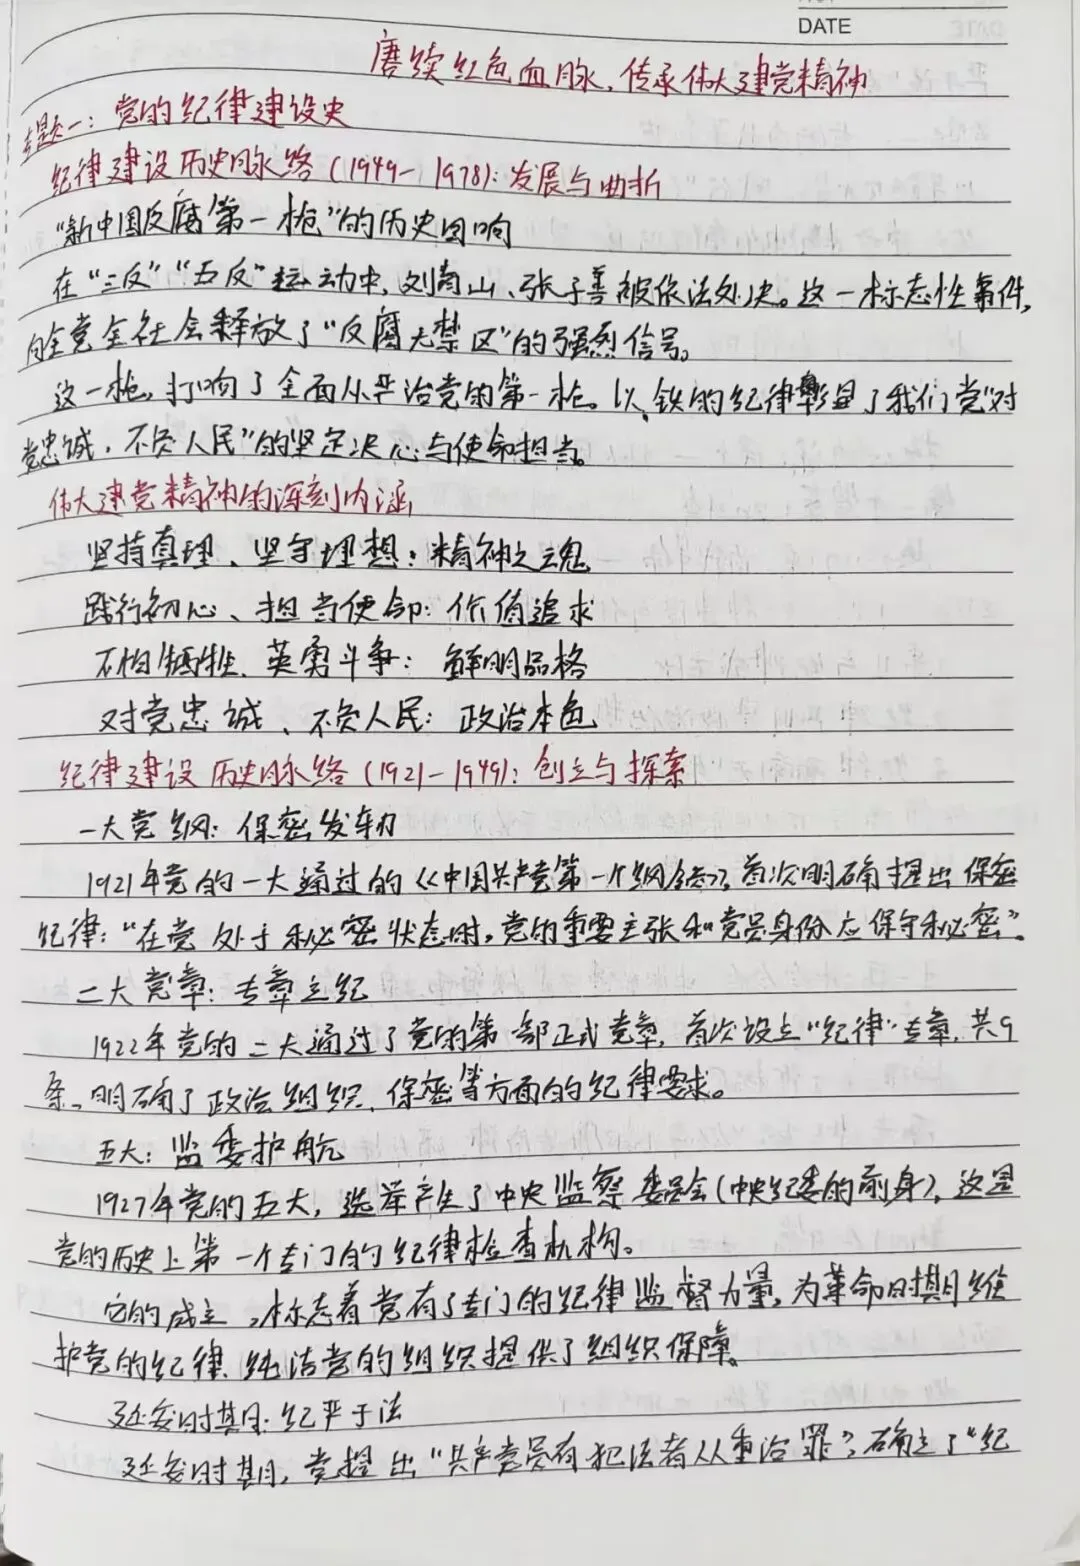 DATE
赓续红色血脉,传承伟大建党精神
专题一:党的纪律建设史
纪律建设历史脉络(1949-1978):发展与曲折
“新中国反腐第一枪”的历史回响
在“三反”“五反”运动中,刘青山、张子善被依法处决。这一标志性事件,
向全党全社会释放了“反腐无禁区”的强烈信号。
这一枪,打响了全面从严治党的第一枪。以铁的纪律彰显了我们党“对
党忠诚,不负人民”的坚定决心与使命担当。
伟大建党精神的深刻内涵
坚持真理、坚守理想:精神之魂
践行初心、担当使命:价值追求
不怕牺牲、英勇斗争:鲜明品格
对党忠诚、不负人民:政治本色
纪律建设历史脉络(1921-1949):创立与探索
一大党纲:保密发轫
1921年党的一大通过的《中国共产党第一个纲领》,首次明确提出保密
纪律:“在党处于秘密状态时,党的重要主张和党员身份应保守秘密”。
二大党章:专章立纪
1922年党的二大通过了党的第一部正式党章,首次设立“纪律”专章,共9
条,明确了政治、组织、保密等方面的纪律要求。
五大:监委护航
1927年党的五大,选举产生了中央监察委员会(中央纪委的前身),这是
党的历史上第一个专门的纪律检查机构。
它的成立,标志着党有了专门的纪律监督力量,为革命时期维
护党的纪律、纯洁党的组织提供了组织保障。
延安时期:纪严于法
延安时期,党提出“共产党员有犯法者从重治罪”,确立了“纪